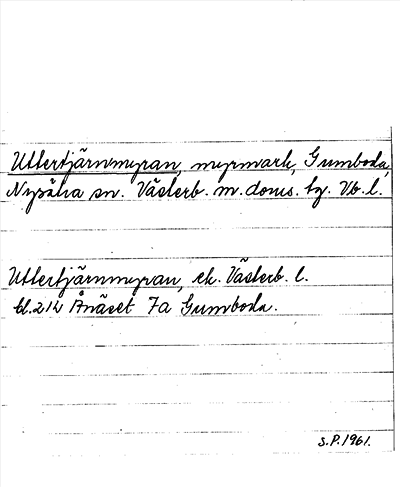 Uttertjärnmyran, myrmark, Gumboda,
Nysätra sn. Västerb. m. doms. tg. Vb. l.
Uttertjärnmyran, ek. Västerb. l.
bl. 212 Ånäset 7a Gumboda.
S.P. 1961.